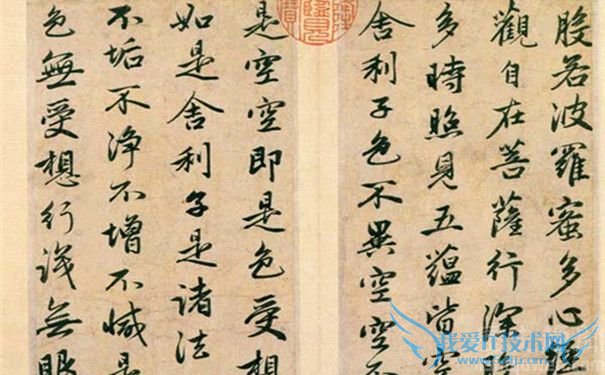 般若波羅蜜多心經
觀自在菩薩行深
多時照見五蘊皆空
舍利子色不異空空不
是空空即是色受想
如是舍利子是諸法
不垢不淨不增不減是
色無受想行識無眼
我爱IT技术网